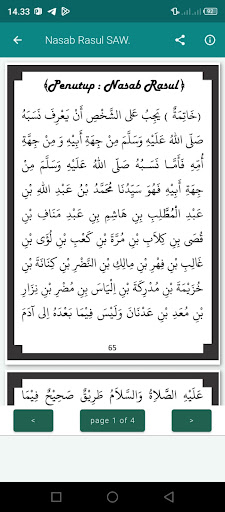 14.33
89
Nasab Rasul SAW.
Penutup : Nasab Rasul
(خَاتِمَةٌ) يَجِبُ عَلَى الشَّخْصِ أَنْ يَعْرِفَ نَسَبَهُ
صَلَى اللهُ عَلَيْهِ وَسَلَّمَ مِنْ جِهَةِ أَبِيْهِ وَ مِنْ جِهَّةِ
أُمِّهِ فَأَمَّا نَسَبُهُ صَلَى اللهُ عَلَيْهِ وَسَلَّمَ مِنْ
جِهَةِ أَبِيْهِ فَهُوَ سَيِّدُنَا مُحَمَّدُ بْنُ عَبْدِ اللهِ بْنِ
عَبْدِ الْمُطَّلِبِ بْنِ هَاشِمِ بْنِ عَبْدِ مَنَافِ بْنِ
قُصَى بْنِ كِلاَبِ بْنِ مُرَّةَ بْنِ كَعْبِ بْنِ لُؤَى بْنِ
غَالِبِ بْنِ فِهْرِ بْنِ مالِكِ بْنِ النَّضْرِ بْنِ كِنَانَةَ بْنِ
خُزَيْمَةَ بْنِ مُدْرِكَةَ بْنِ اِلْيَاسَ بْنِ مُضَرَ بْنِ نِزَارِ
بْنِ مَعَدِ بْنِ عَدْنَانَ وَلَيْسَ فِيْمَا بَعْدَهُ اِلَى آدَمَ
65
عَلَيْهِ الصَّلاَةُ وَالسَّلاَمُ طَرِيْقٌ صَحِيْحٌ فِيْمَا
<
page 1 of 4
>